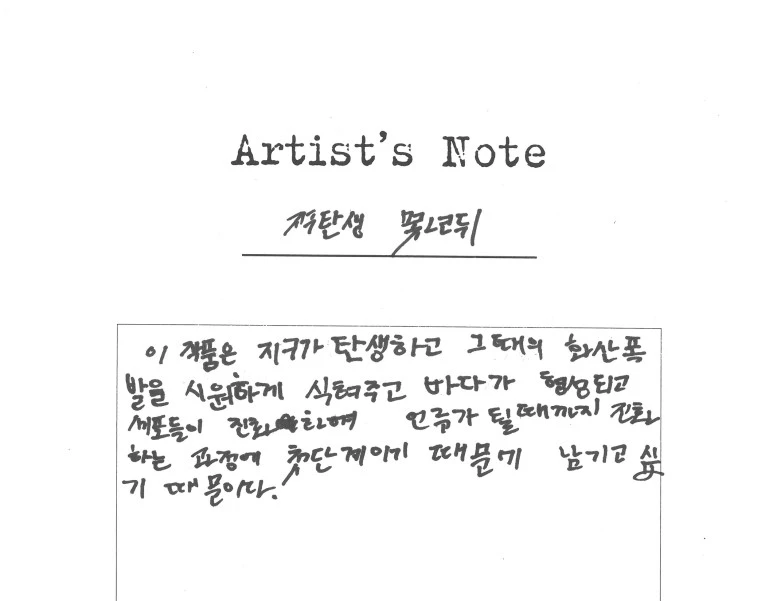 Artist's Note
탄생
이 작품은 지구가 탄생하고 그때의 화산폭
발을 시원하게 식혀주고 바다가 형성되고
세포들이 진화하며 인류가 될때까지 진화
하는 과정에 첫단계이기 때문에 남기고 싶
기 때문이다.